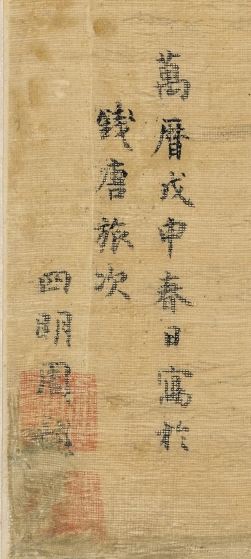 萬曆戊申春日寫於
錢唐旅次
四明周